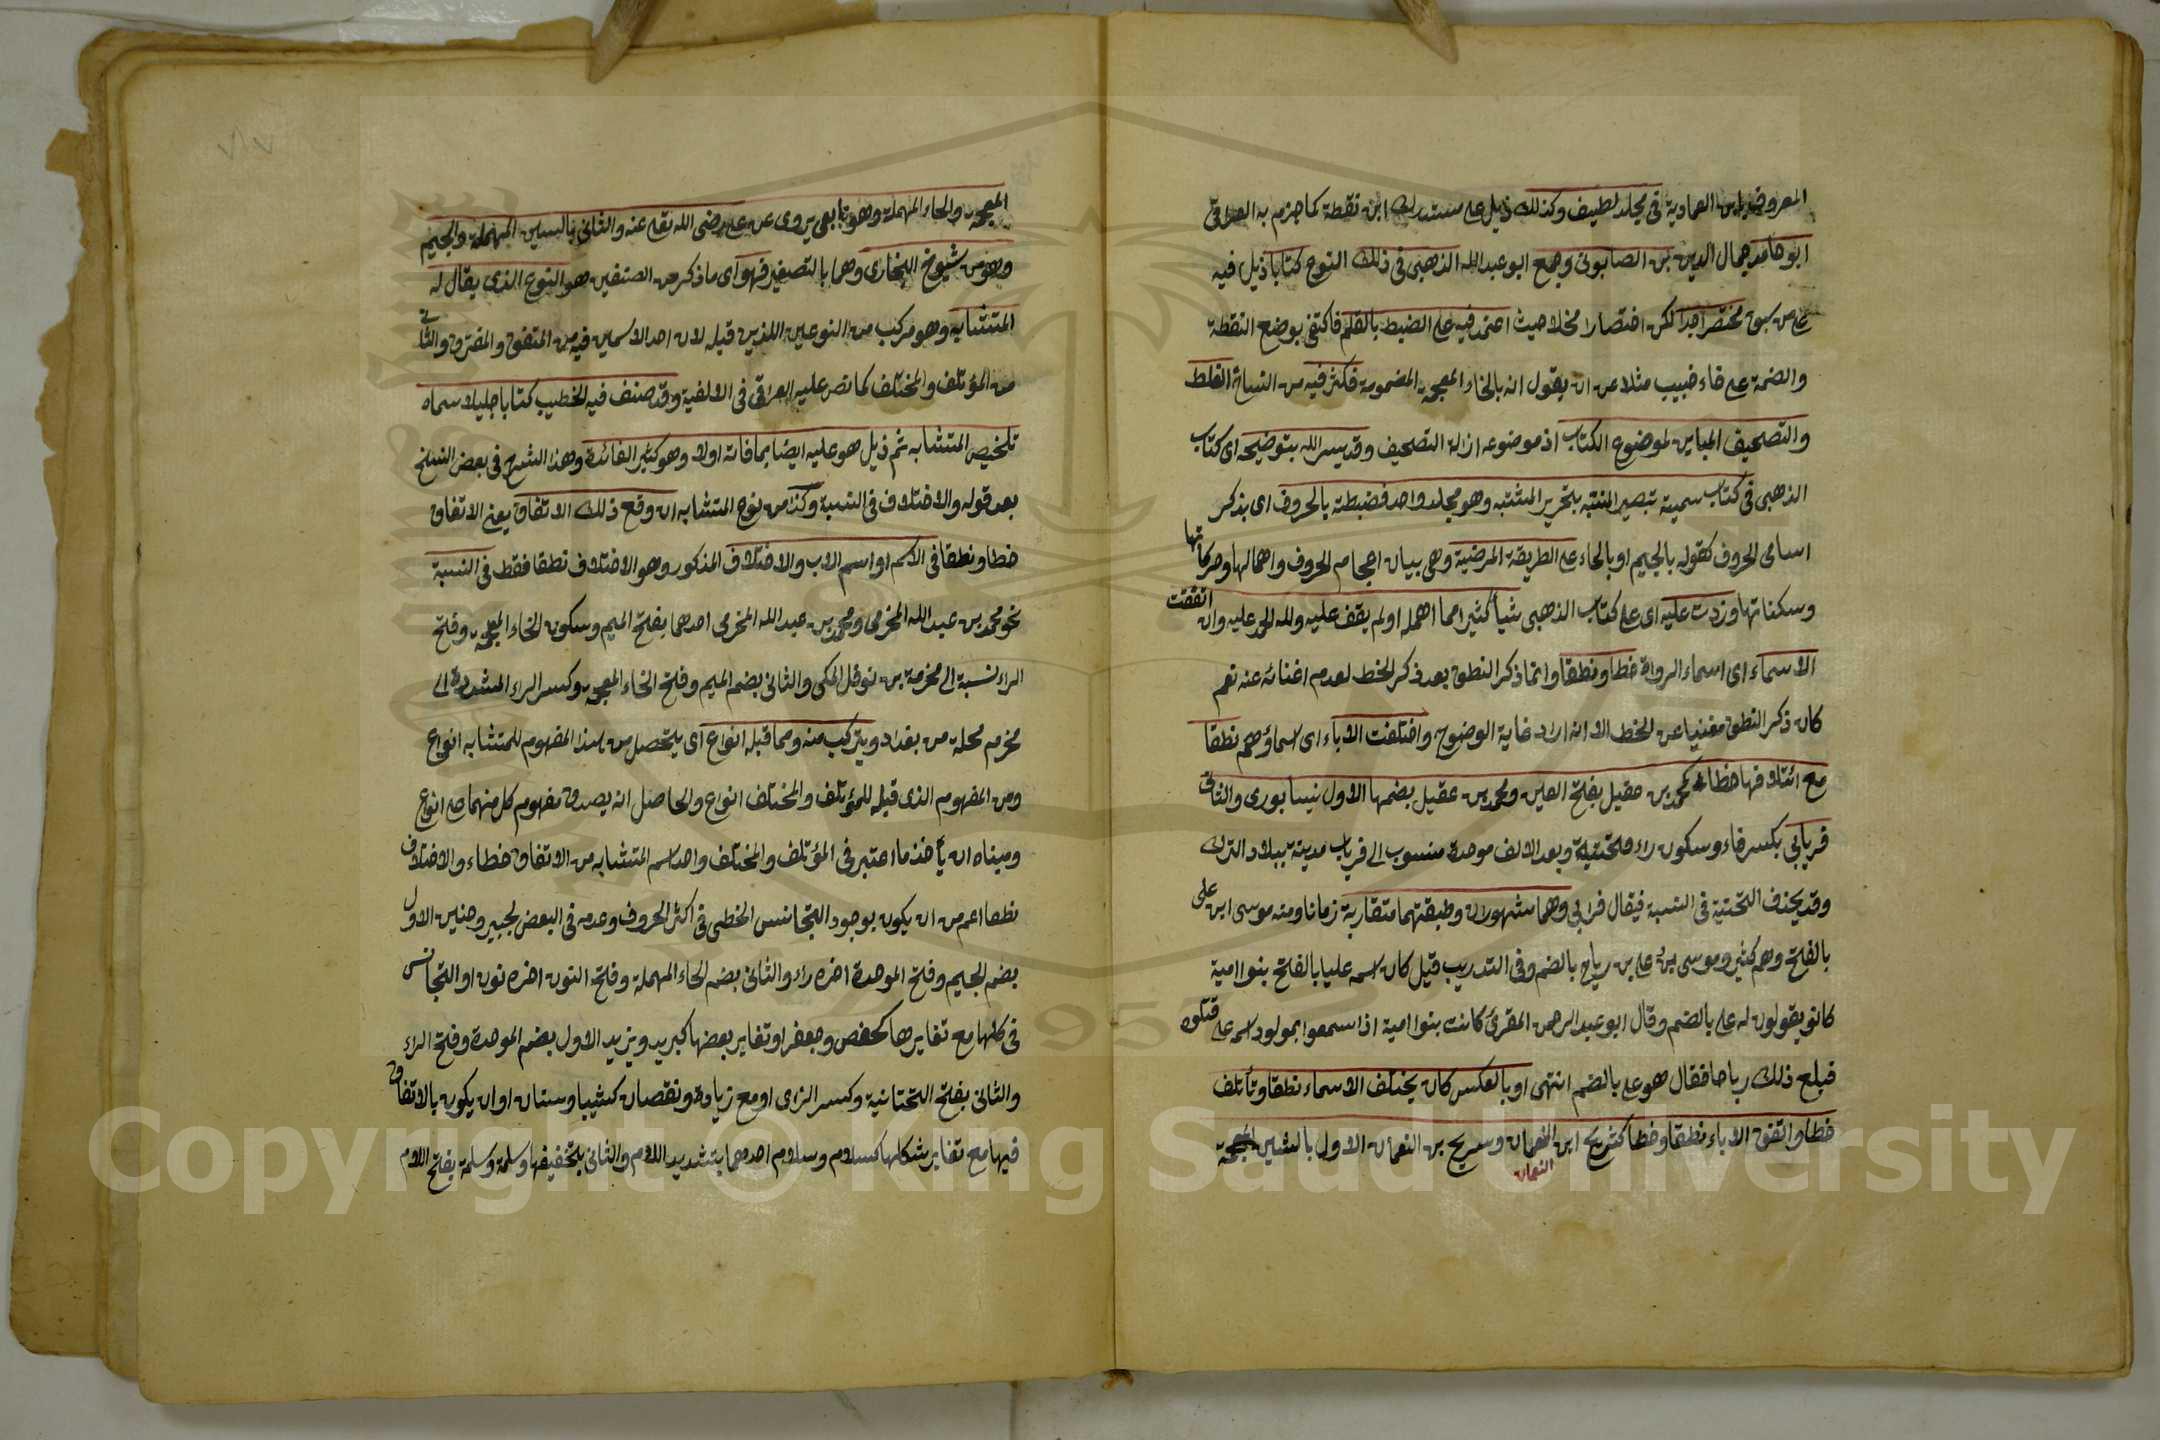 المعروف بابن العمادية في مجلد لطيف وكذلك ذيل على مستدرك ابن نقطة كما جزم به العراقي
ابو حامد جمال الدين بن الصابوني وجمع ابو عبد الله الذهبي في ذلك النوع كتابا ذيل فيه
على من سبق مختصرا جدا لكن اختصارا مخلا حيث اعتمد فيه على الضبط بالقلم فاكتفى بوضع النقطة
والضمة على خاء خبيب مثلا عن ان يقول انه بالخاء المعجمة المضمومة فكثر فيه من النساخ الغلط
والتصحيف المباين لموضوع الكتاب اذ موضوعه ازالة التصحيف وقد يسر الله بتوضيحه اي كتاب
الذهبي في كتاب سميته تبصير المنتبه بتحرير المشتبه وهو مجلد واحد فضبطته بالحروف اي بذكر
اسامى الحروف كقوله بالجيم او بالحاء على الطريقة المرضية وهي بيان اعجام الحروف واهمالها وحركاتها
وسكناتها وزدت عليه اى على كتاب الذهبى شيأ كثيرا مما اهمله او لم يقف عليه ولله الحمد عليه وان اتفقت
الاسماء اى اسماء الرواة خطا ونطقا وانما ذكر النطق بعد ذكر الخط لعدم اغنائه عنه نعم
كان ذكر النطق مغنيا عن الخط الا انه اراد غاية الوضوح واختلفت الاباء اى اسماؤهم نطقا
مع ائتلافها خطا كمحمد بن عقيل بفتح العين ومحمد بن عقيل بضمها الاول نيسابورى والثانى
فريابي بكسر فاء وسكون راء فتحتية وبعد الالف موحدة منسوب الى فرياب مدينة ببلاد الترك
وقد يحذف التحتية فى النسبة فيقال فرابى وهما مشهوران وطبقتهما متقاربة زمانا ومنه موسى ابن على
بالفتح وهم كثير وموسى بن على بن رياح بالضم وفى التدريب قيل كان اسمه عليا بالفتح بنوا امية
كانو يقولون له على بالضم وقال ابو عبد الرحمن المقرئ كانت بنوا امية اذا سمعوا بمولود اسمه على قتلوه
فبلغ ذلك رباحا فقال هو على بالضم انتهى او بالعكس كان يختلف الاسماء نطقا وتأتلف
خطا واتفق الاباء نطقا وخطا كشريح ابن النعمان وسريح بن النعمان الاول بالشين المعجمة
النعمان
المعجمة والحاء المهملة وهو تابعى يروى عن على رضى الله تعالى عنه والثانى بالسين المهملة والجيم
وهو من شيوخ البخارى وهما بالتصغير فهو اى ما ذكر من الصنفين هو النوع الذى يقال له
المتشابه وهو مركب من النوعين اللذين قبله لان احد الاسمين فيه من المتفق والمفترق والثانى
من المؤتلف والمختلف كما نص عليه العراقى فى الالفية وقد صنف فيه الخطيب كتابا جليلا سماه
تلخيص المتشابه ثم ذيل هو عليه ايضا بما فاته اولا وهو كثير الفائدة وهذا الشرح فى بعض النسخ
بعد قوله والاختلاف فى النسبة وكذا من نوع المتشابه ان وقع ذلك الاتفاق يعنى الاتفاق
خطا ونطقا فى الاسم او اسم الاب والاختلاف المذكور وهو الاختلاف نطقا فقط فى النسبة
نحو محمد بن عبد الله المخرمى ومحمد بن عبد الله المخرمى احدهما بفتح الميم وسكون الخاء المعجمة وفتح
الراء نسبة الى مخرمة بن نوفل المكى والثانى بضم الميم وفتح الخاء المعجمة وكسر الراء المشددة الى
مخرم محلة من بغداد ويتركب منه ومما قبله انواع اى يتحصل من هذا المفهوم للمتشابه انواع
ومن المفهوم الذى قبله للمؤتلف والمختلف انواع والحاصل انه يصدق مفهوم كل منهما على انواع
ومبناه ان يأخذ ما اعتبر فى المؤتلف والمختلف واحد اسم المتشابه من الاتفاق خطاء والاختلاف
نطقا اعم من ان يكون بوجود التجانس الخطى فى اكثر الحروف وعدمه فى البعض لجبير وحنين الاول
بضم الجيم وفتح الموحدة اخره راء والثانى بضم الحاء المهملة وفتح النون اخره نون او التجانس
فى كلها مع تغايرها كحفص وجعفر او تغاير بعضها كبريد ويزيد الاول بضم الموحدة وفتح الراء
والثانى بفتح التحتانية وكسر الزاى او مع زيادة ونقصان كشيبا وسنان او ان يكون بالاتفاق
فيها مع تغاير شكلها كسلام وسلام احدهما بتشديد اللام والثانى بتخفيفها وسلمة وسلمة بفتح اللام
Copyright © King Saud University